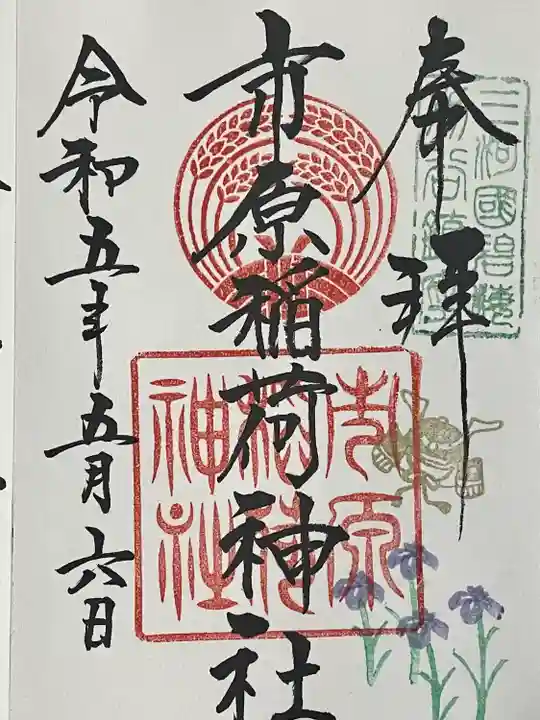 奉拝
三河國碧海
市原稲荷神社
市原稲荷神社
令和五年五月六日